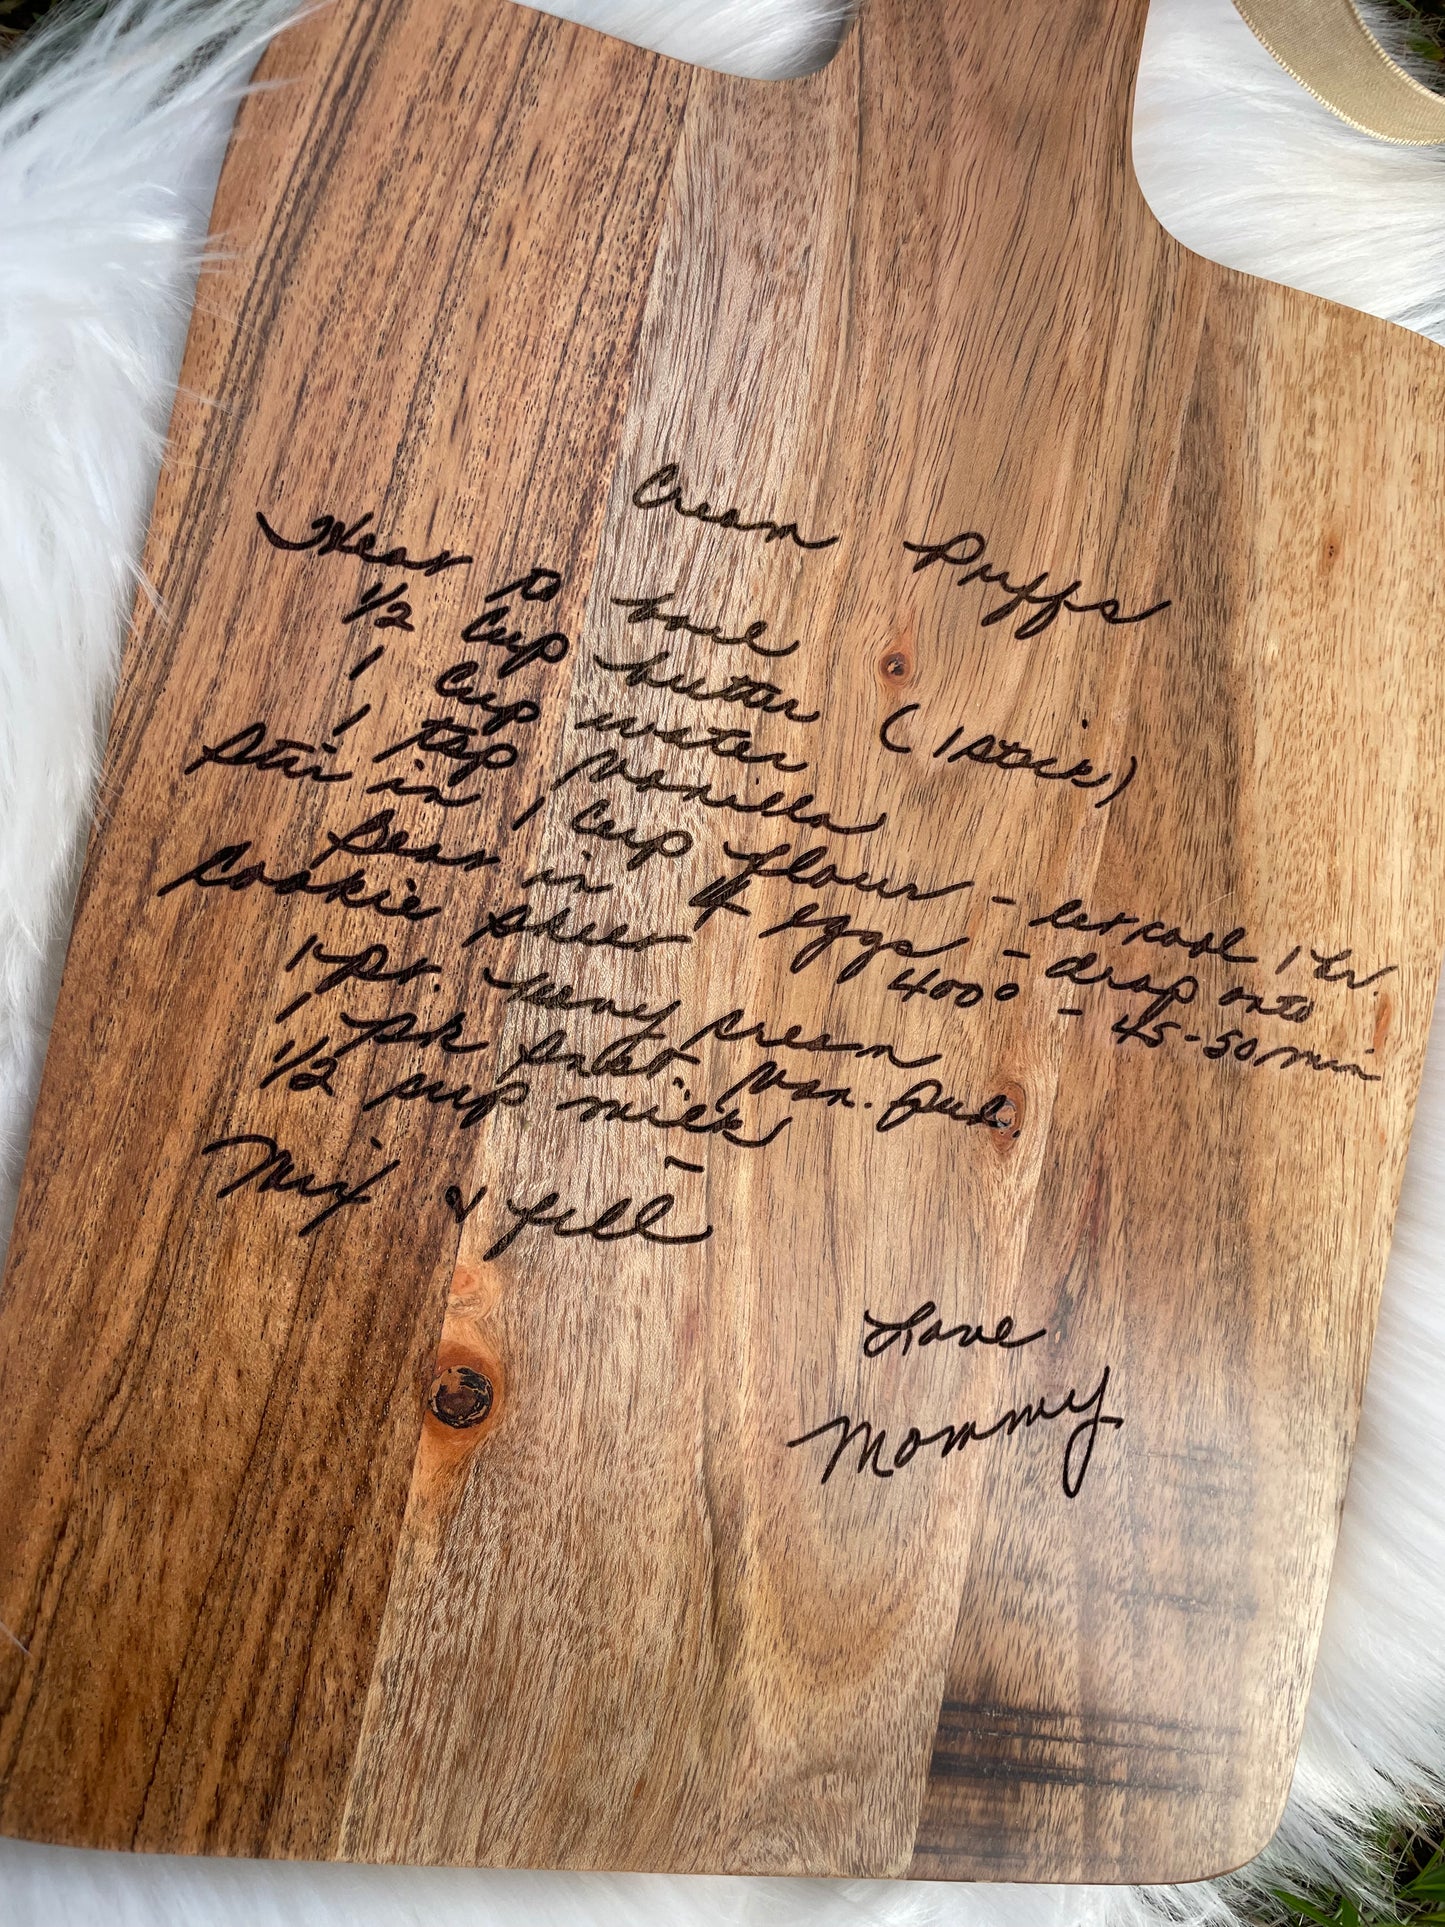 Cream Puffs
Heat to boil
1/2 cup butter (1 stick)
1 cup water
1 tsp vanilla
Stir in 1 cup flour - let cool 1 hr.
Beat in 4 eggs - drop onto
cookie sheet 400° - 45-50 min
1 pt. heavy cream
1 pk inst. van. pud.
1/2 cup milk
Mix & fill
Love
Mommy